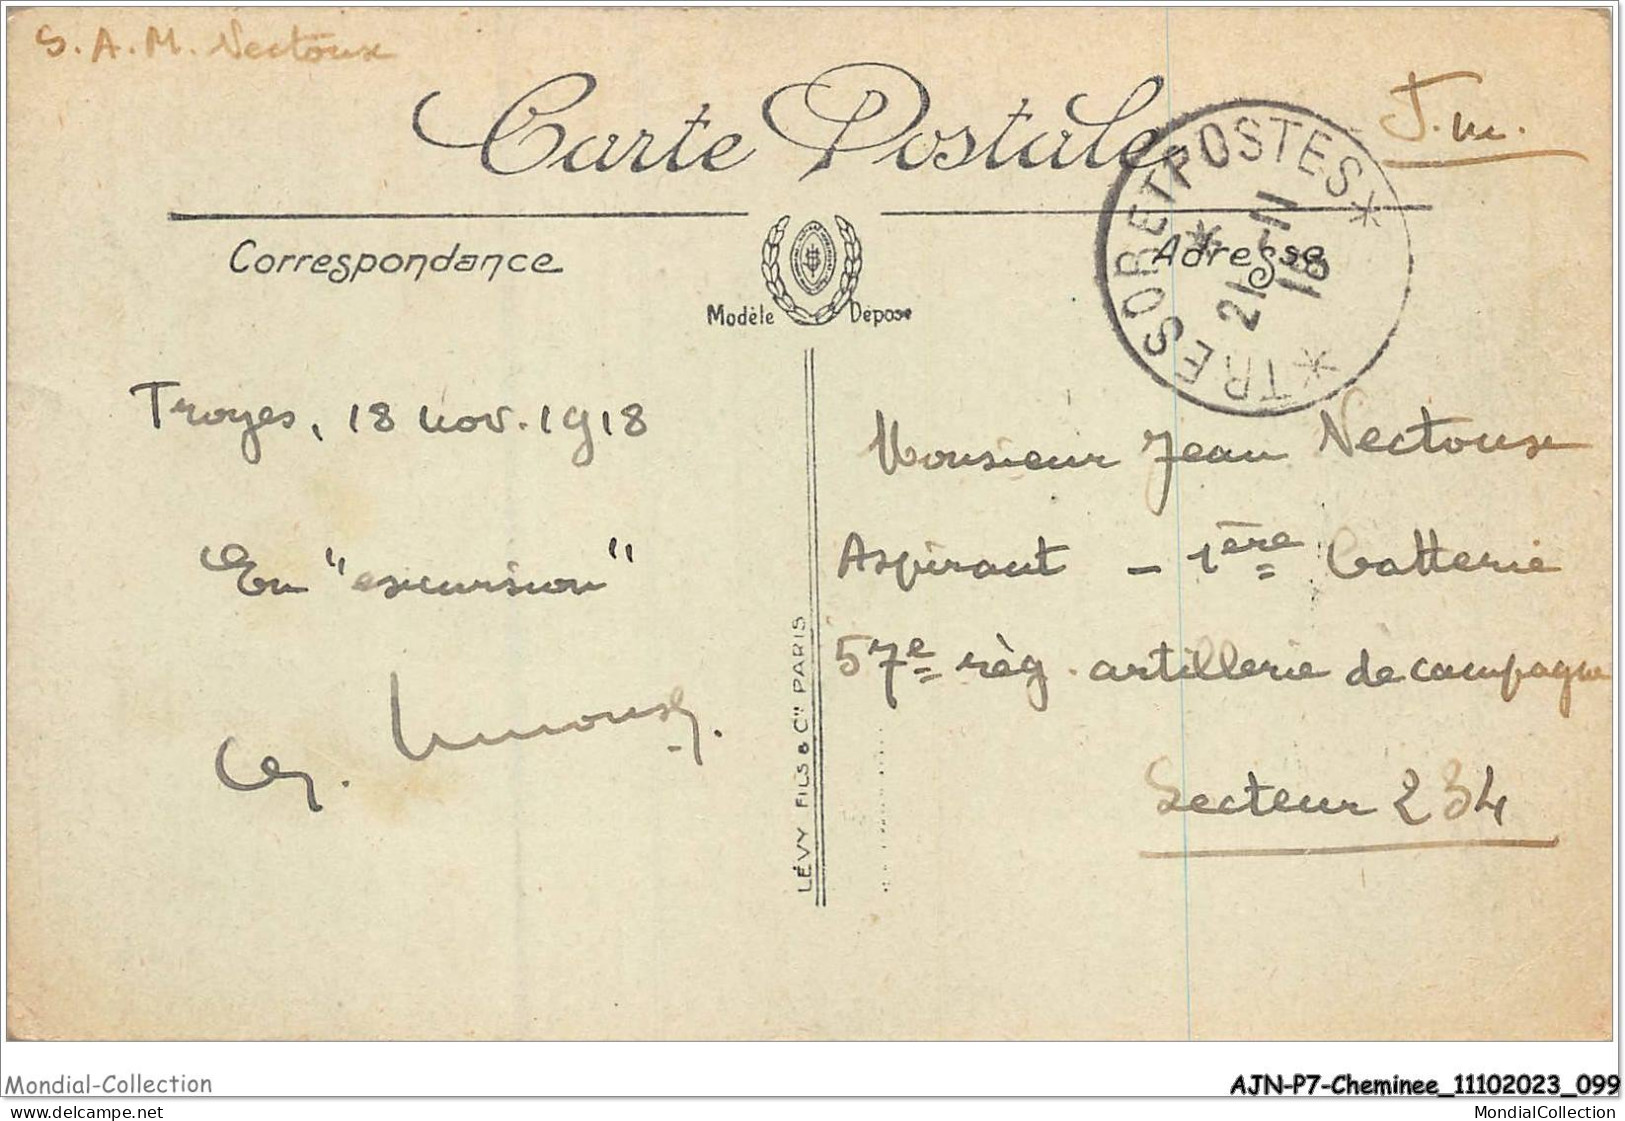 S. A. M. Nectoux
Carte Postale
F. M.
TRESOR ET POSTES
21 - 11
18
Correspondance
Adresse
Modèle Déposé
Troyes, 18 nov. 1918
En "excursion"
Monsieur Jean Nectoux
Aspirant - 1ère batterie
57e règ. artillerie de campagne
Secteur 234
LÉVY FILS & Cie PARIS
Mondial-Collection
AJN-P7-Cheminee_11102023_099
www.delcampe.net
MondialCollection